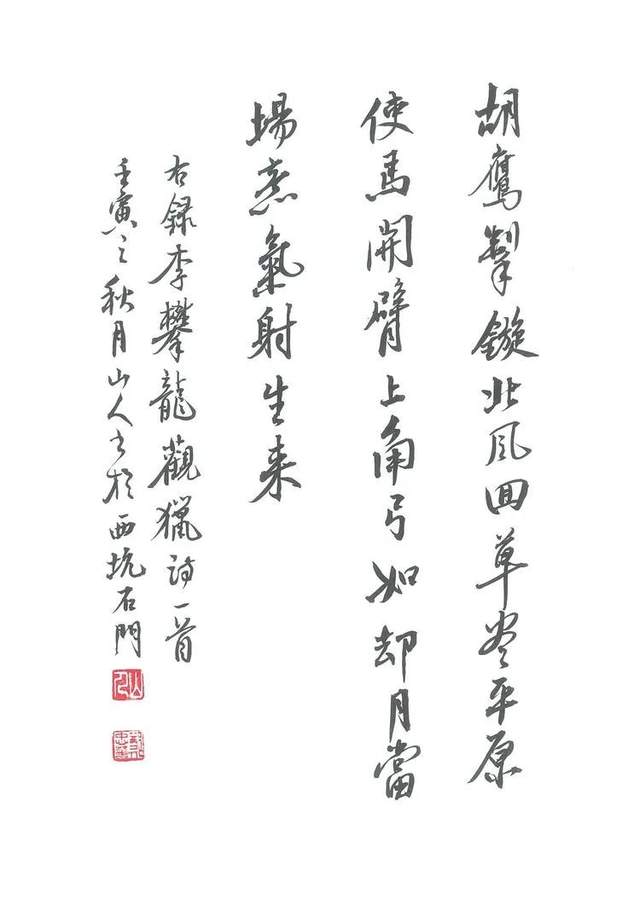 胡鷹掣鏇北風回草尽平原
使馬開臂上角弓如却月當
場意氣射生来
右録李攀龍觀獵詩一首
壬寅之秋月山人书於西坑石門
山人